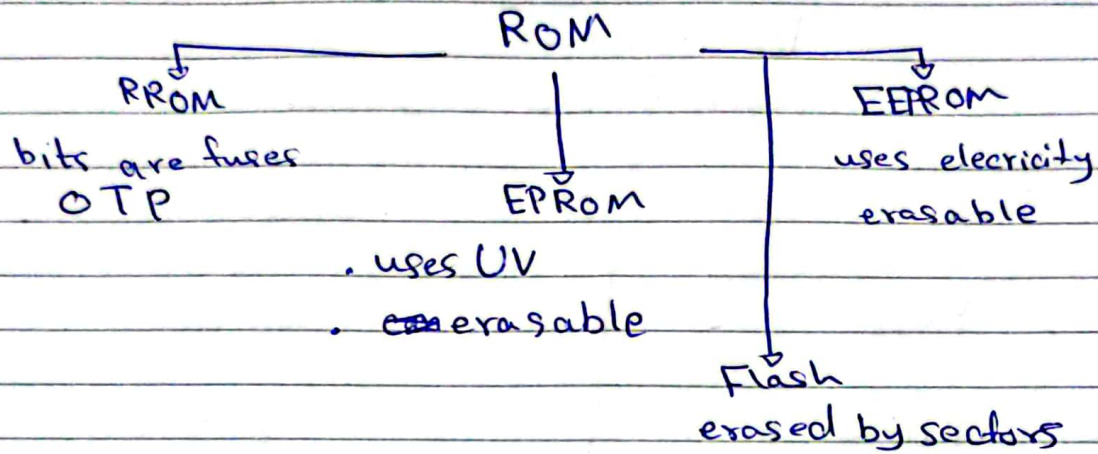 ROM
RROM
bits are fuses
OTP
EPROM
. uses UV
. erasable
EEPROM
uses elecricity
erasable
Flash
erased by sectors